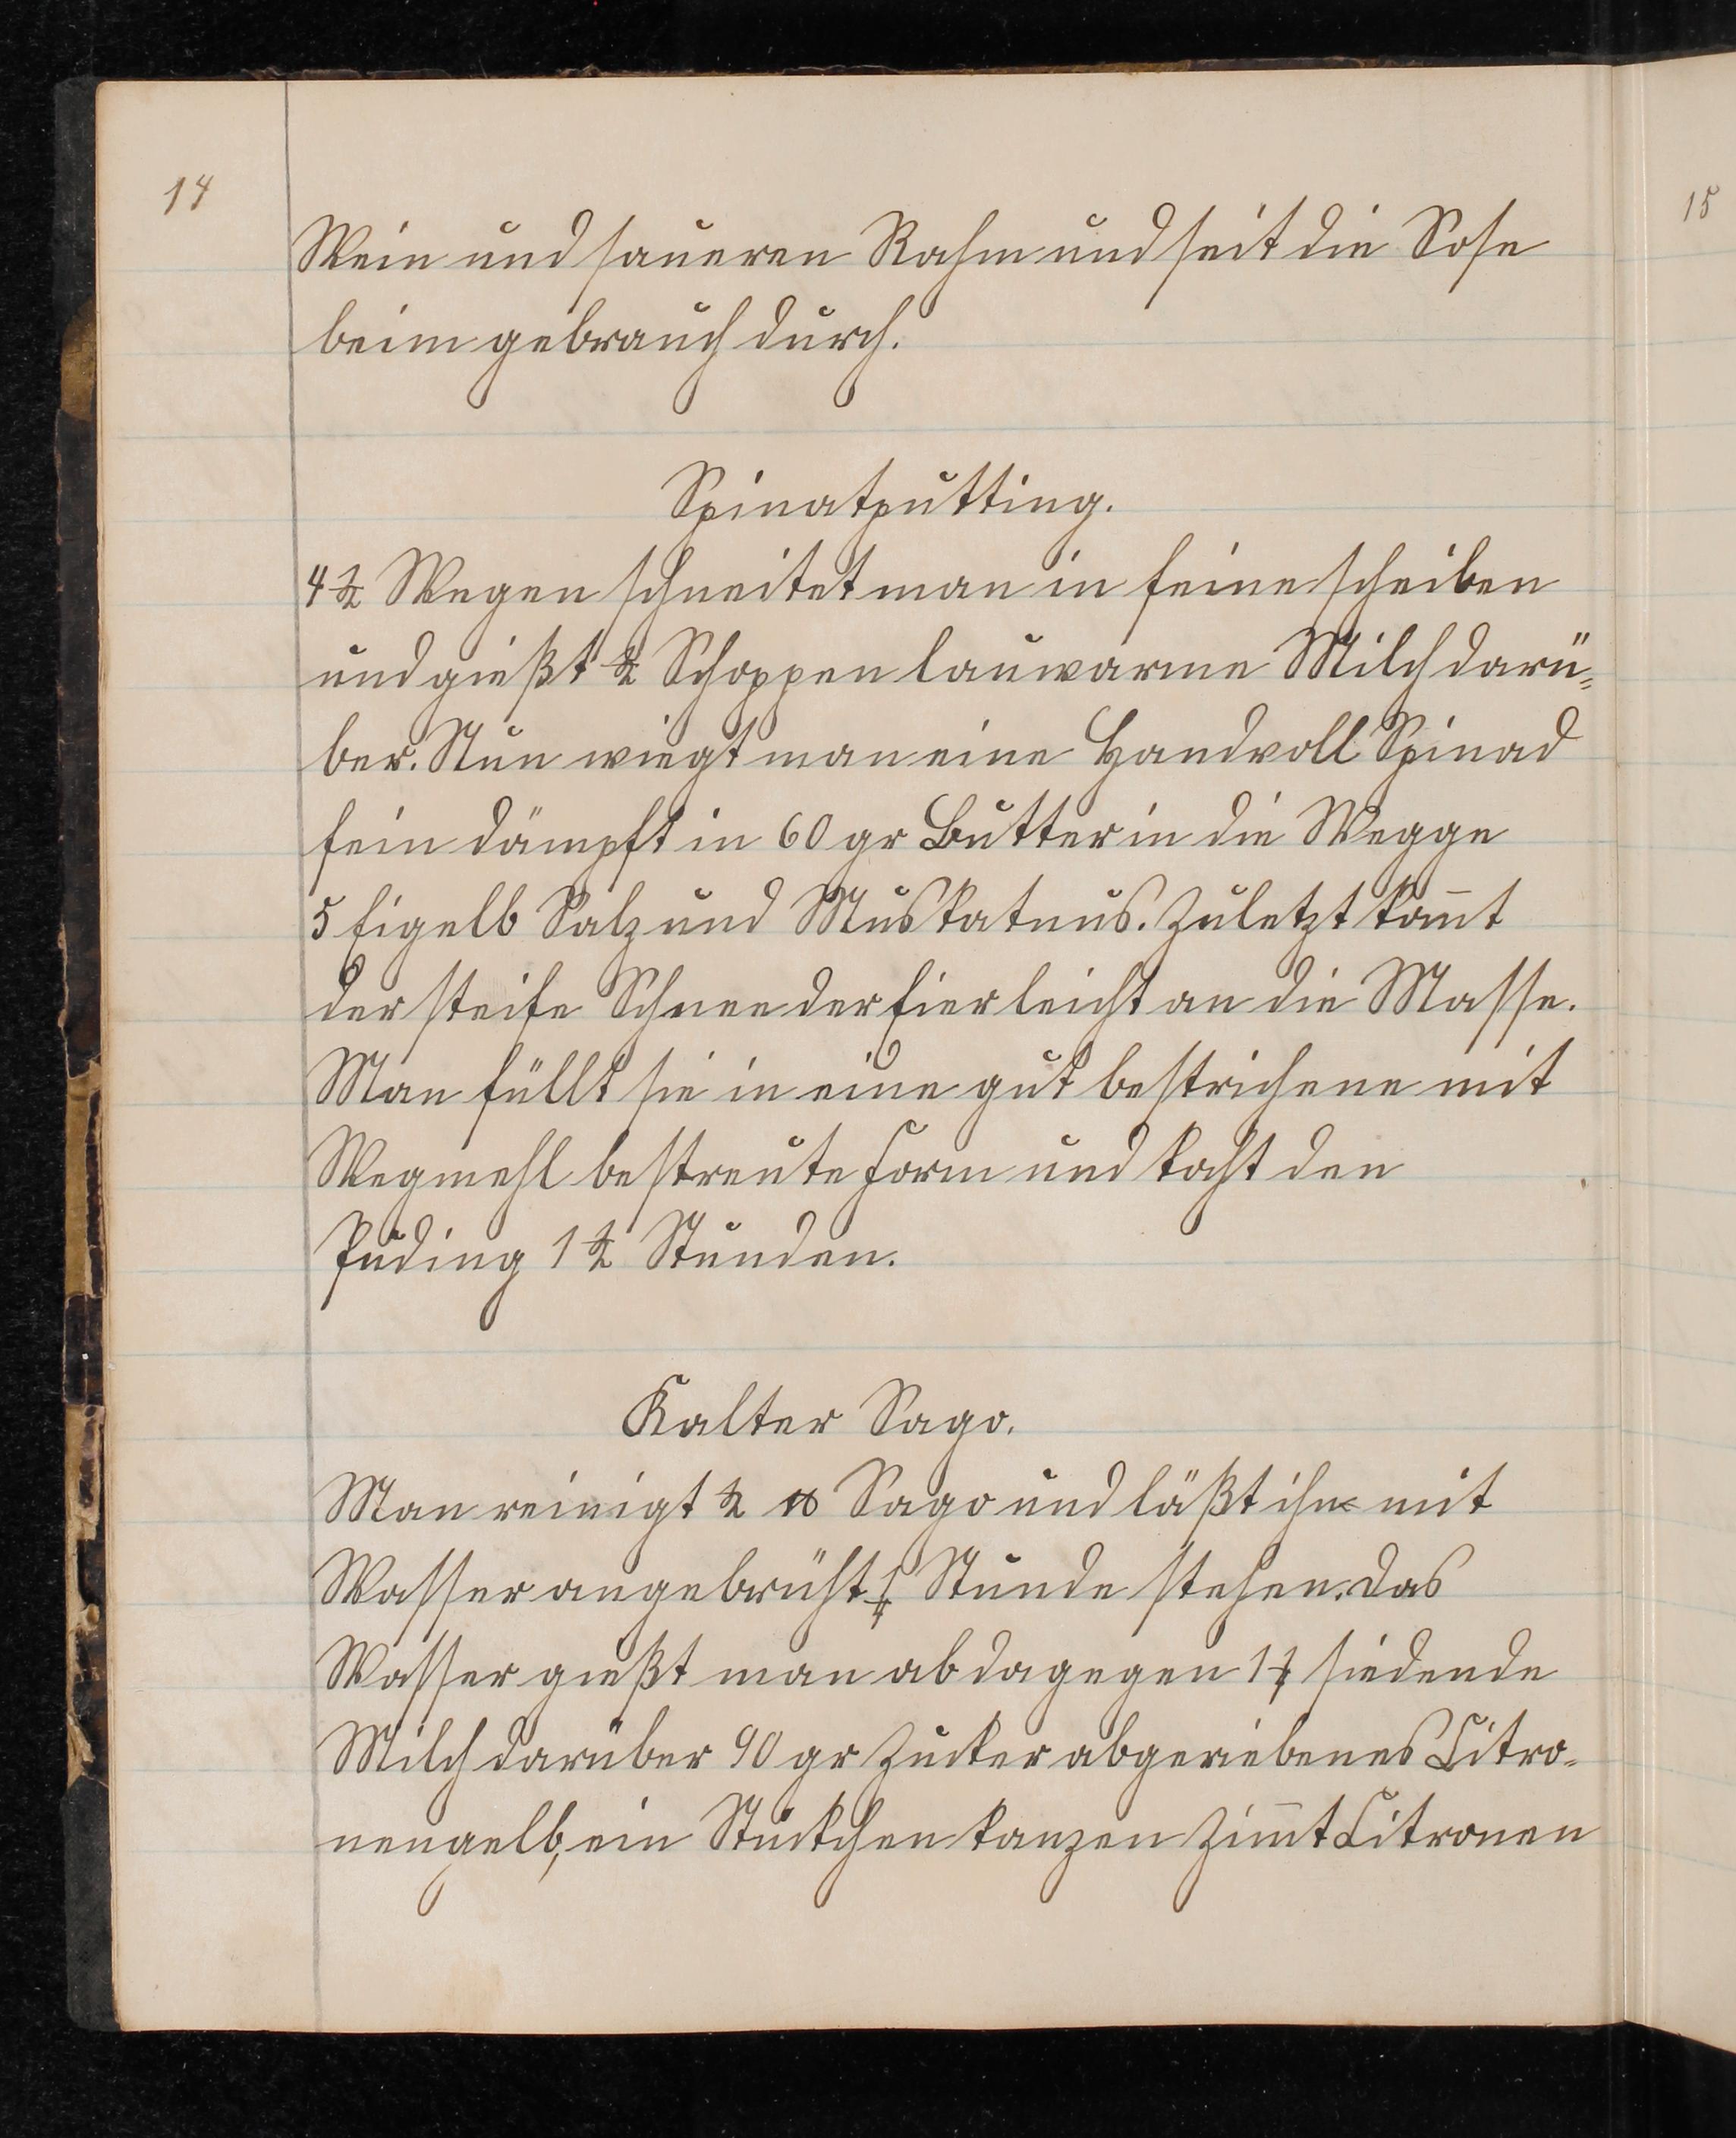 14
15
Wein und saueren Rahm und seit die Sose
beim gebrauch durch.
Spinatputting.
4 ½ Wegen schneitet man in feine scheiben
und gießt ½ Schoppen lauwarme Milch darü=
ber. Nun wiegt man eine Handvoll Spinad
fein dämpft in 60 gr Butter in die Wegge
5 Eigelb Salz und Muskatnus. Zuletzt kom̅t
der steife Schnee der Eier leicht an die Masse.
Man füllt sie in eine gut bestrichene mit
Wegmehl bestreute Form und kocht den
Puding 1 ½ Stunden.
Kalter Sago.
Man reinigt ½ ℔ Sago und läßt ihn mit
Wasser angebrüht ¼ Stunde stehen. das
Wasser gießt man ab dagegen 1 siedende
Milch darüber 90 gr Zucker abgeriebenes Citro=
nengelb, ein Stückchen kanzen Zim̅t Citronen